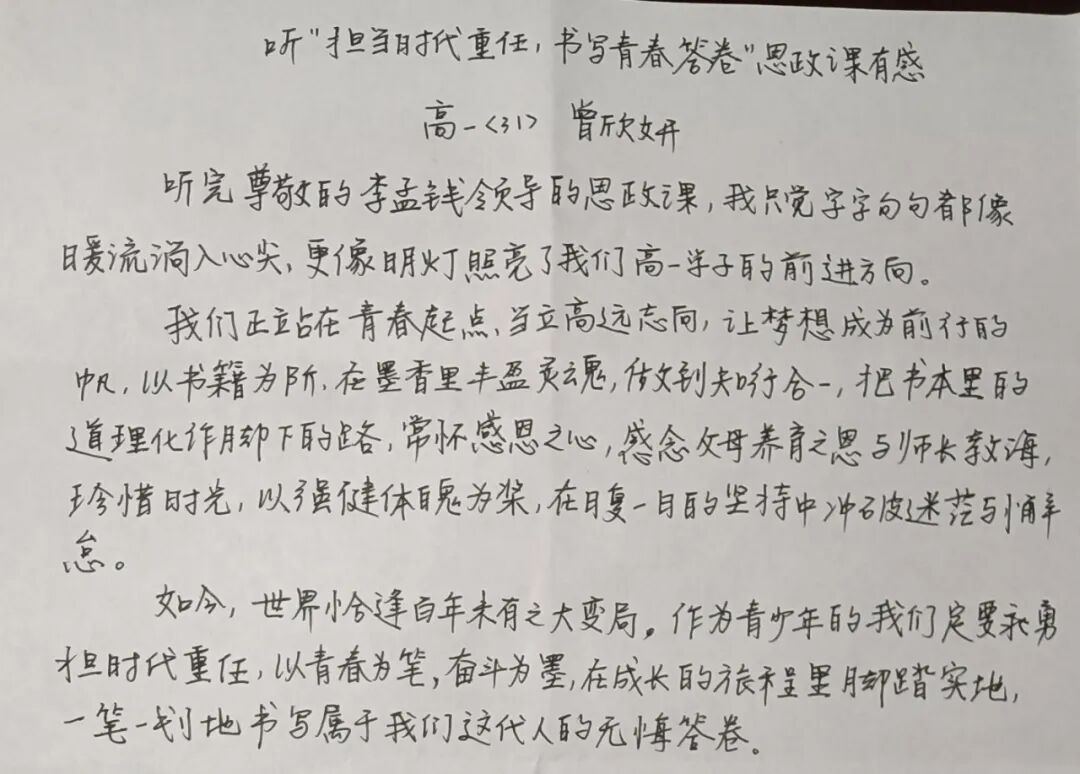 听"担当时代重任,书写青春答卷"思政课有感
高一<31> 曾欣妍
听完尊敬的李孟钱领导的思政课,我只觉字字句句都像
暖流淌入心尖,更像明灯照亮了我们高一学子的前进方向。
我们正站在青春起点,当立高远志向,让梦想成为前行的
帆,以书籍为阶,在墨香里丰盈灵魂,做到知行合一,把书本里的
道理化作脚下的路,常怀感恩之心,感念父母养育之恩与师长教诲,
珍惜时光,以强健体魄为桨,在日复一日的坚持中冲破迷茫与懈
怠。
如今,世界恰逢百年未有之大变局。作为青少年的我们定要勇
担时代重任,以青春为笔,奋斗为墨,在成长的旅程里脚踏实地,
一笔一划地书写属于我们这代人的无悔答卷。